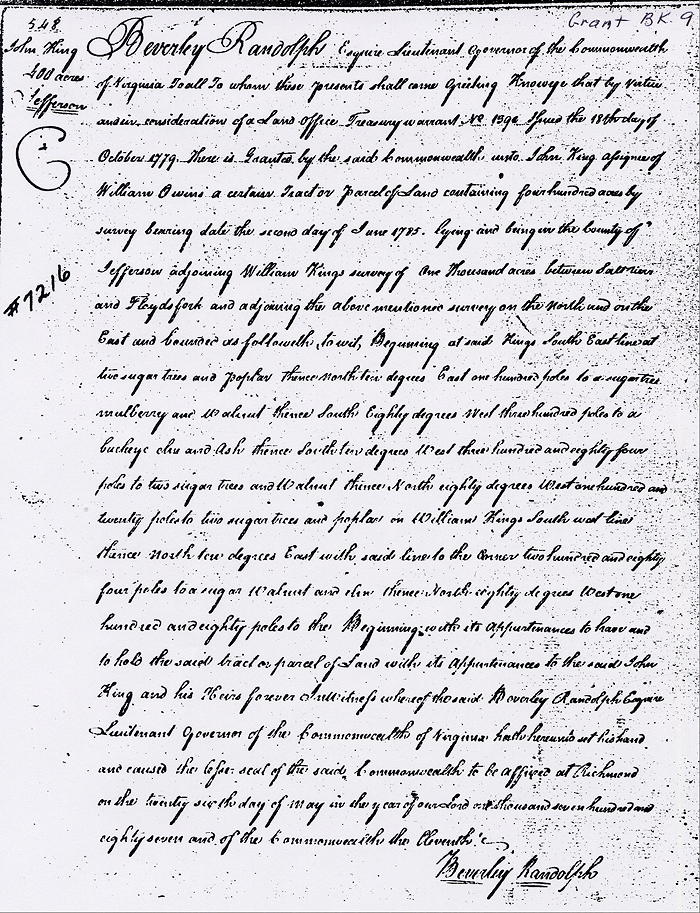 Grant BK. 9
548
John King
400 acres
Jefferson
#7216
Beverley Randolph Esquire Lieutenant Governor of the Commonwealth
of Virginia To all To whom these presents shall come Greeting Know ye that by virtue
and in consideration of a Land Office Treasury warrant No. 1396 Issued the 18th day of
October 1779. There is Granted by the said Commonwealth unto John King assignee of
William Owins a certain Tract or Parcel of Land containing four hundred acres by
survey bearing date the second day of June 1785. lying and being in the County of
Jefferson adjoining William Kings survey of One Thousand acres between Salt river
and Floyds fork and adjoining the above mentione survey on the North and on the
East and bounded as followeth, to wit, Beginning at said Kings South East line at
two sugar trees and poplar thence North ten degrees East one hundred poles to a sugar tree
mulberry and Walnut thence South Eighty degrees West three hundred poles to a
buckeye elm and Ash thence South ten degrees West three hundred and eighty four
poles to two sugar trees and Walnut thence North eighty degrees West one hundred and
twenty poles to two sugar trees and poplar on William Kings South west line
thence North ten degrees East with said line to the Corner two hundred and eighty
four poles to a sugar Walnut and elm thence North eighty degrees West one
hundred and eighty poles to the Beginning with its Appurtenances to have and
to hold the said tract or parcel of Land with its Appurtenances to the said John
King and his Heirs forever In Witness whereof the said Beverley Randolph Esquire
Lieutenant Governor of the Commonwealth of Virginia hath hereunto set his hand
and caused the lesser seal of the said Commonwealth to be affixed at Richmond
on the twenty sixth day of May in the year of our Lord one thousand seven hundred and
eighty seven and of the Commonwealth the Eleventh
Beverley Randolph